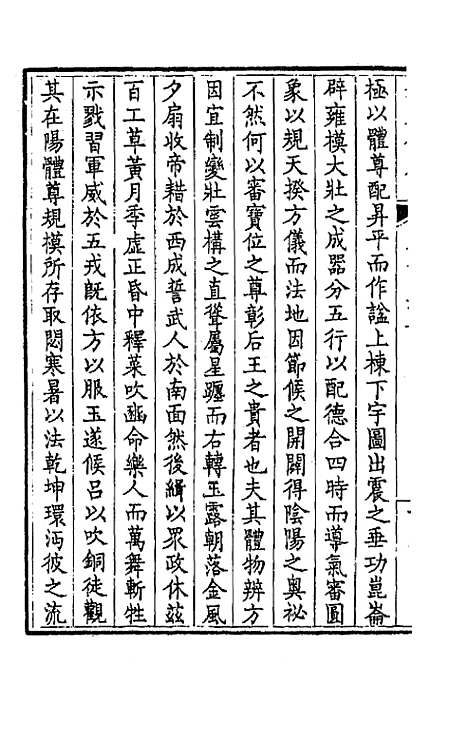 極以體尊配昇平而作謚上棟下宇圖出震之垂功崑崙
辟雍模大壯之成器分五行以配德合四時而導氣審圓
象以規天揆方儀而法地因節候之開闢得陰陽之奥祕
不然何以審寶位之尊彰后王之貴者也夫其體物辨方
因宜制變壯雲構之直聳屬星躔而右轉玉露朝落金風
夕扇收帝耤於西成誓武人於南面然後緝以眾政休兹
百工草黄月季虚正昏中釋菜吹豳命樂人而萬舞斬牲
示戮習軍威於五戎既依方以服玉遂候吕以吹銅徒觀
其在陽體尊規模所存取閟寒暑以法乾坤環沔彼之流